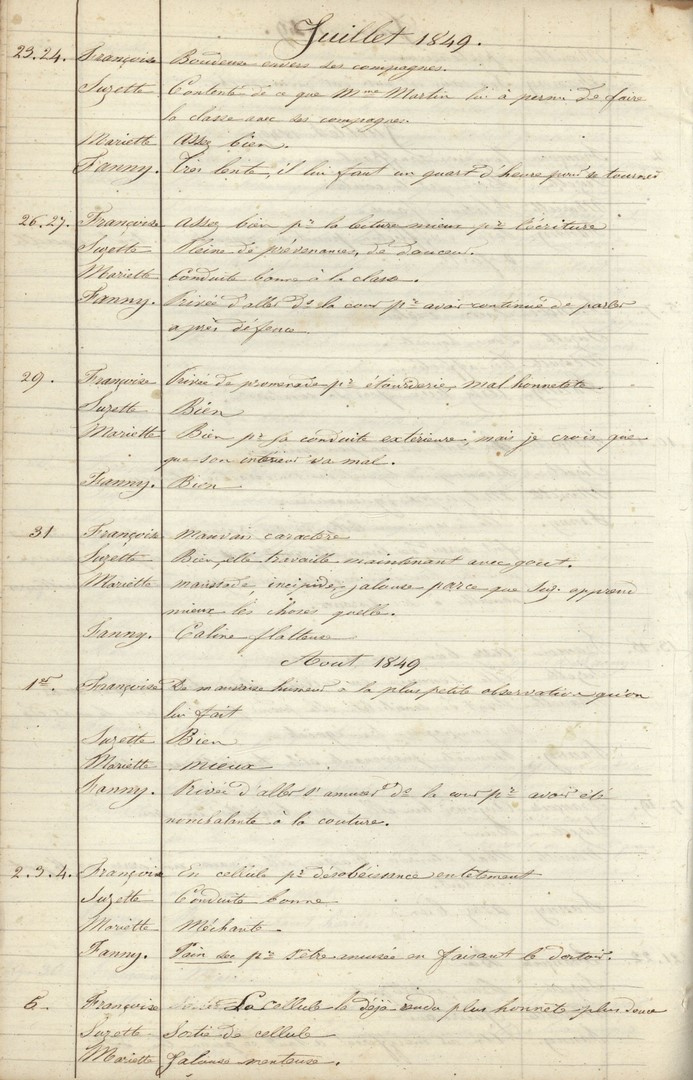 Juillet 1849.
23.24. Françoise Boudeuse envers ses compagnes.
Suzette Contente de ce que Mme Martin lui à permi de faire
la classe avec ses compagnes.
Mariette Assez bien.
Fanny. Très lente, il lui faut un quart d'heure pour se tourner
26.27. Françoise Assez bien pr la lecture mieux pr l'écriture
Suzette Pleine de prévenances, de douceur.
Mariette Conduite bonne à la classe.
Fanny. Privée d'aller ds la cour pr avoir continué de parler
après défence
29. Françoise Privée de promenade pr étourderie, mal honnetete.
Suzette Bien
Mariette Bien pr sa conduite extérieure, mais je crois que
que son intérieur va mal.
Fanny. Bien
31 Françoise Mauvais caractère
Suzette Bien, elle travaille maintenant avec gout.
Mariette maussade, incipide, jalouse parce que Suz. apprend
mieux les choses quelle.
Fanny. Caline flatteuse
Aout 1849
1er. Françoise De mauvaise humeur à la plus petite observation qu'on
lui fait
Suzette Bien
Mariette mieux
Fanny. Privée d'aller s'amuser ds la cour pr avoir été
noncholante à la couture.
2.3.4. Françoise En cellule pr désobéissance entetement
Suzette Conduite bonne
Mariette Méchante.
Fanny. Pain sec pr s'être amusée en faisant le dortoir.
6. Françoise La cellule la déjà rendu plus honnete plus douce
Suzette Sortie de cellule
Mariette Jalouse menteuse.